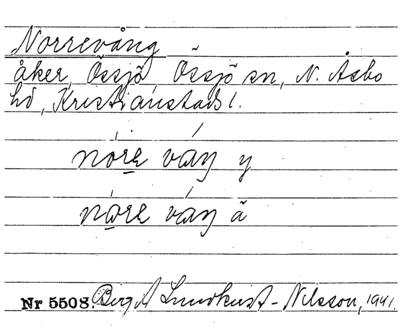 Norrevång
åker, Össjö, Össjö sn, N. Åsbo
hd, Kristianstads l.
nóre váŋ y
náre váŋ ä
Nr 5508. Birgit Lundkvist-Nilsson, 1941.